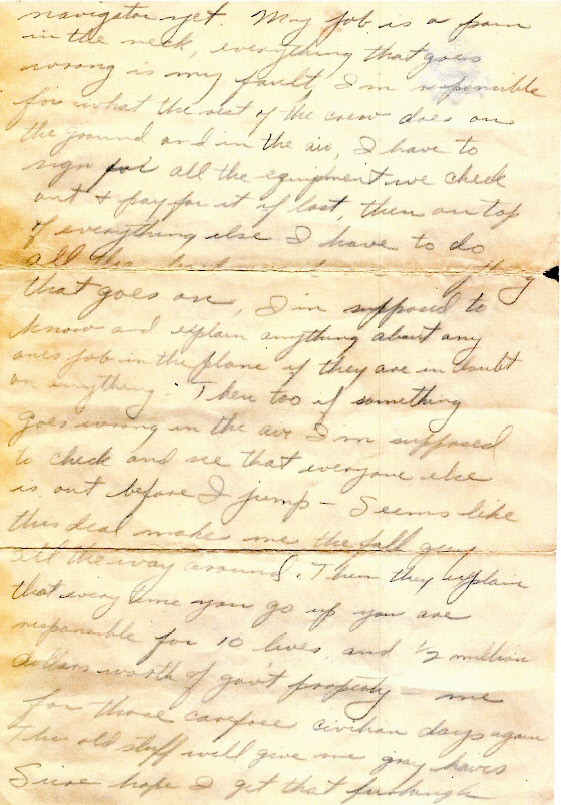 navigator yet. My job is a pain
in the neck, everything that goes
wrong is my fault, I'm responsible
for what the rest of the crew does on
the ground and in the air, I have to
sign for all the equipment we check
out & pay for it if lost, then on top
of everything else I have to do
all the
that goes on, I'm supposed to
know and explain anything about any
ones job in the plane if they are in doubt
on anything - Then too if something
goes wrong in the air I'm supposed
to check and see that everyone else
is out before I jump - Seems like
this deal makes me the fall guy
all the way around. Then they explain
that every time you go up you are
responsible for 10 lives, and 1/2 million
dollars worth of gov't property - me
for those carefree civilian days again
This old stuff will give me gray hairs
Sure hope I get that furlough